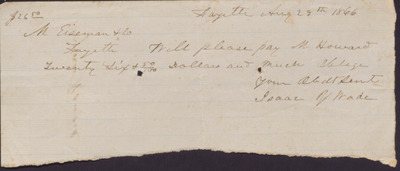 $26 50 Fayette Aug 28th 1866
M Eiseman & Co
Fayette Will please pay M Howard
Twenty Six & 50/00 Dollars and Much Oblige
Your Obdt Servt
Isaac Wade